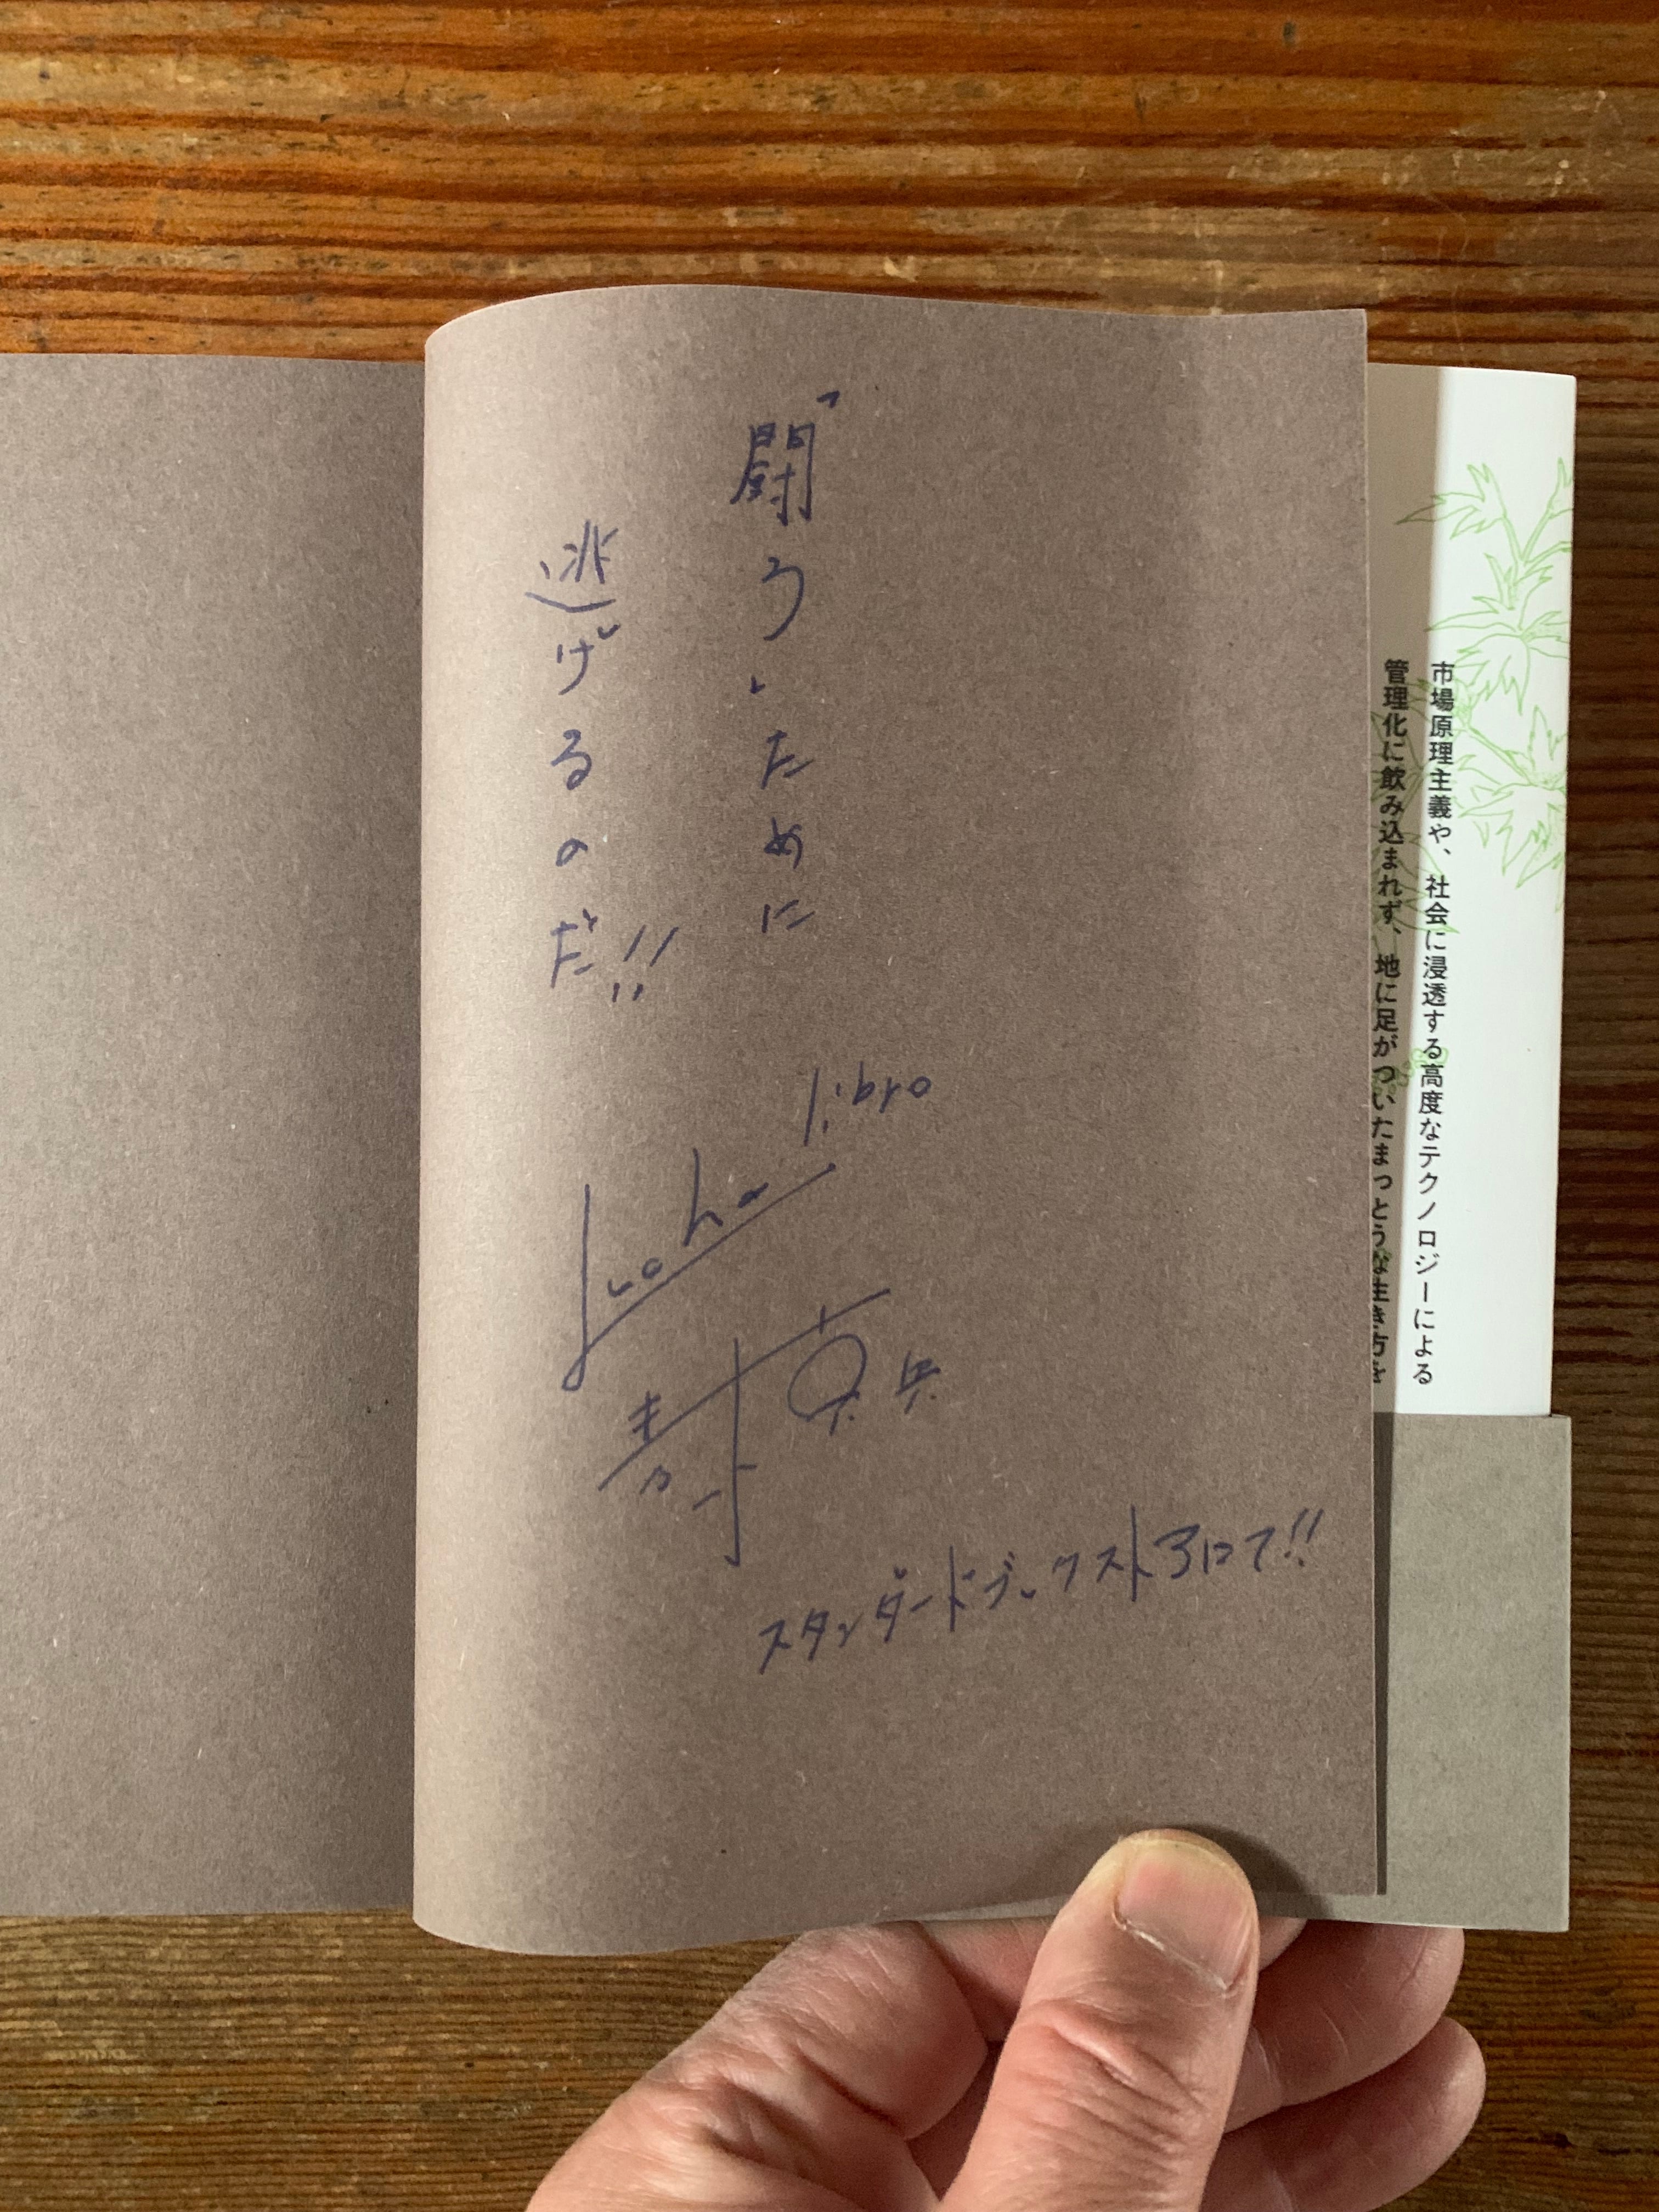 市場原理主義や、社会に浸透する高度なテクノロジーによる
管理化に飲み込まれず、地に足がついたまっとうな生き方を
「闘う」ために
逃げるのだ!!
Lucha
libro
青木真兵
スタンダードブックストアにて!!